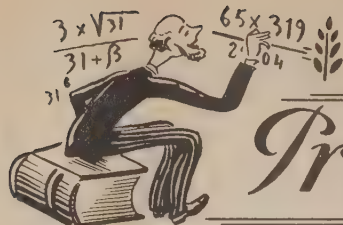 3 × √31
31 + β
31⁶
65 × 319
Pr